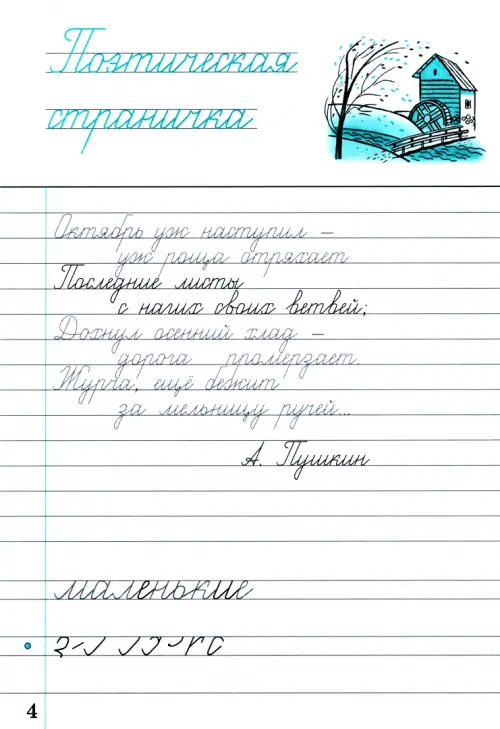 Поэтическая
страничка
Октябрь уж наступил –
уж роща отряхает
Последние листы
с нагих своих ветвей;
Дохнул осенний хлад –
дорога промерзает.
Журча, ещё бежит
за мельницу ручей...
А. Пушкин
маленькие
4